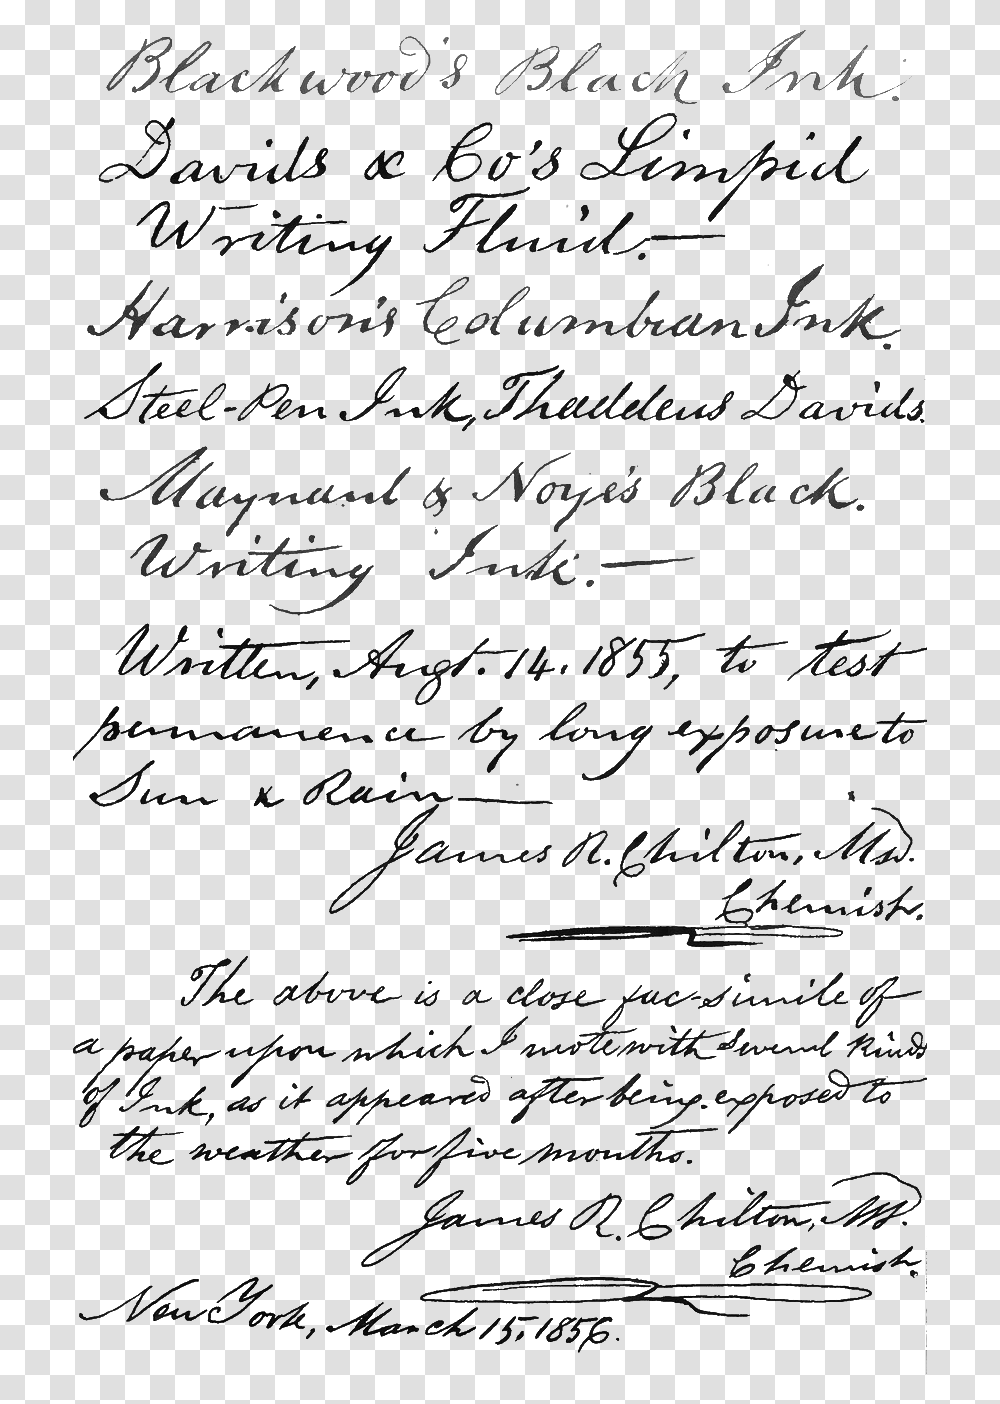 Blackwood's Black Ink.
Davids & Co's Limpid
Writing Fluid.—
Harrison's Columbian Ink.
Steel-Pen Ink, Thaddeus Davids.
Maynard & Noye's Black.
Writing Ink.—
Written, Augt. 14. 1855, to test
permanence by long exposure to
Sun & Rain—
James R. Chilton, MD.
Chemist.
The above is a close fac-simile of
a paper upon which I wrote with several kinds
of Ink, as it appeared after being exposed to
the weather for five months.
James R. Chilton, MD.
Chemist.
New York, March 15, 1856.